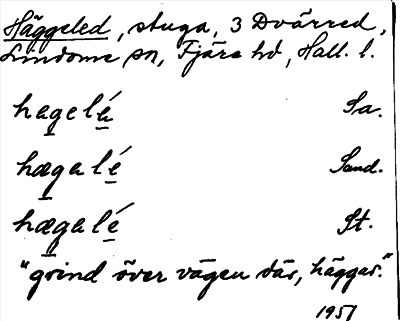 Häggeled, stuga, 3 Dvärred,
Lindome sn, Fjäre hd, Hall. l.
hagelá Sa.
hægalé Sand.
hægalé St.
"grind över vägen där, häggar."
1951